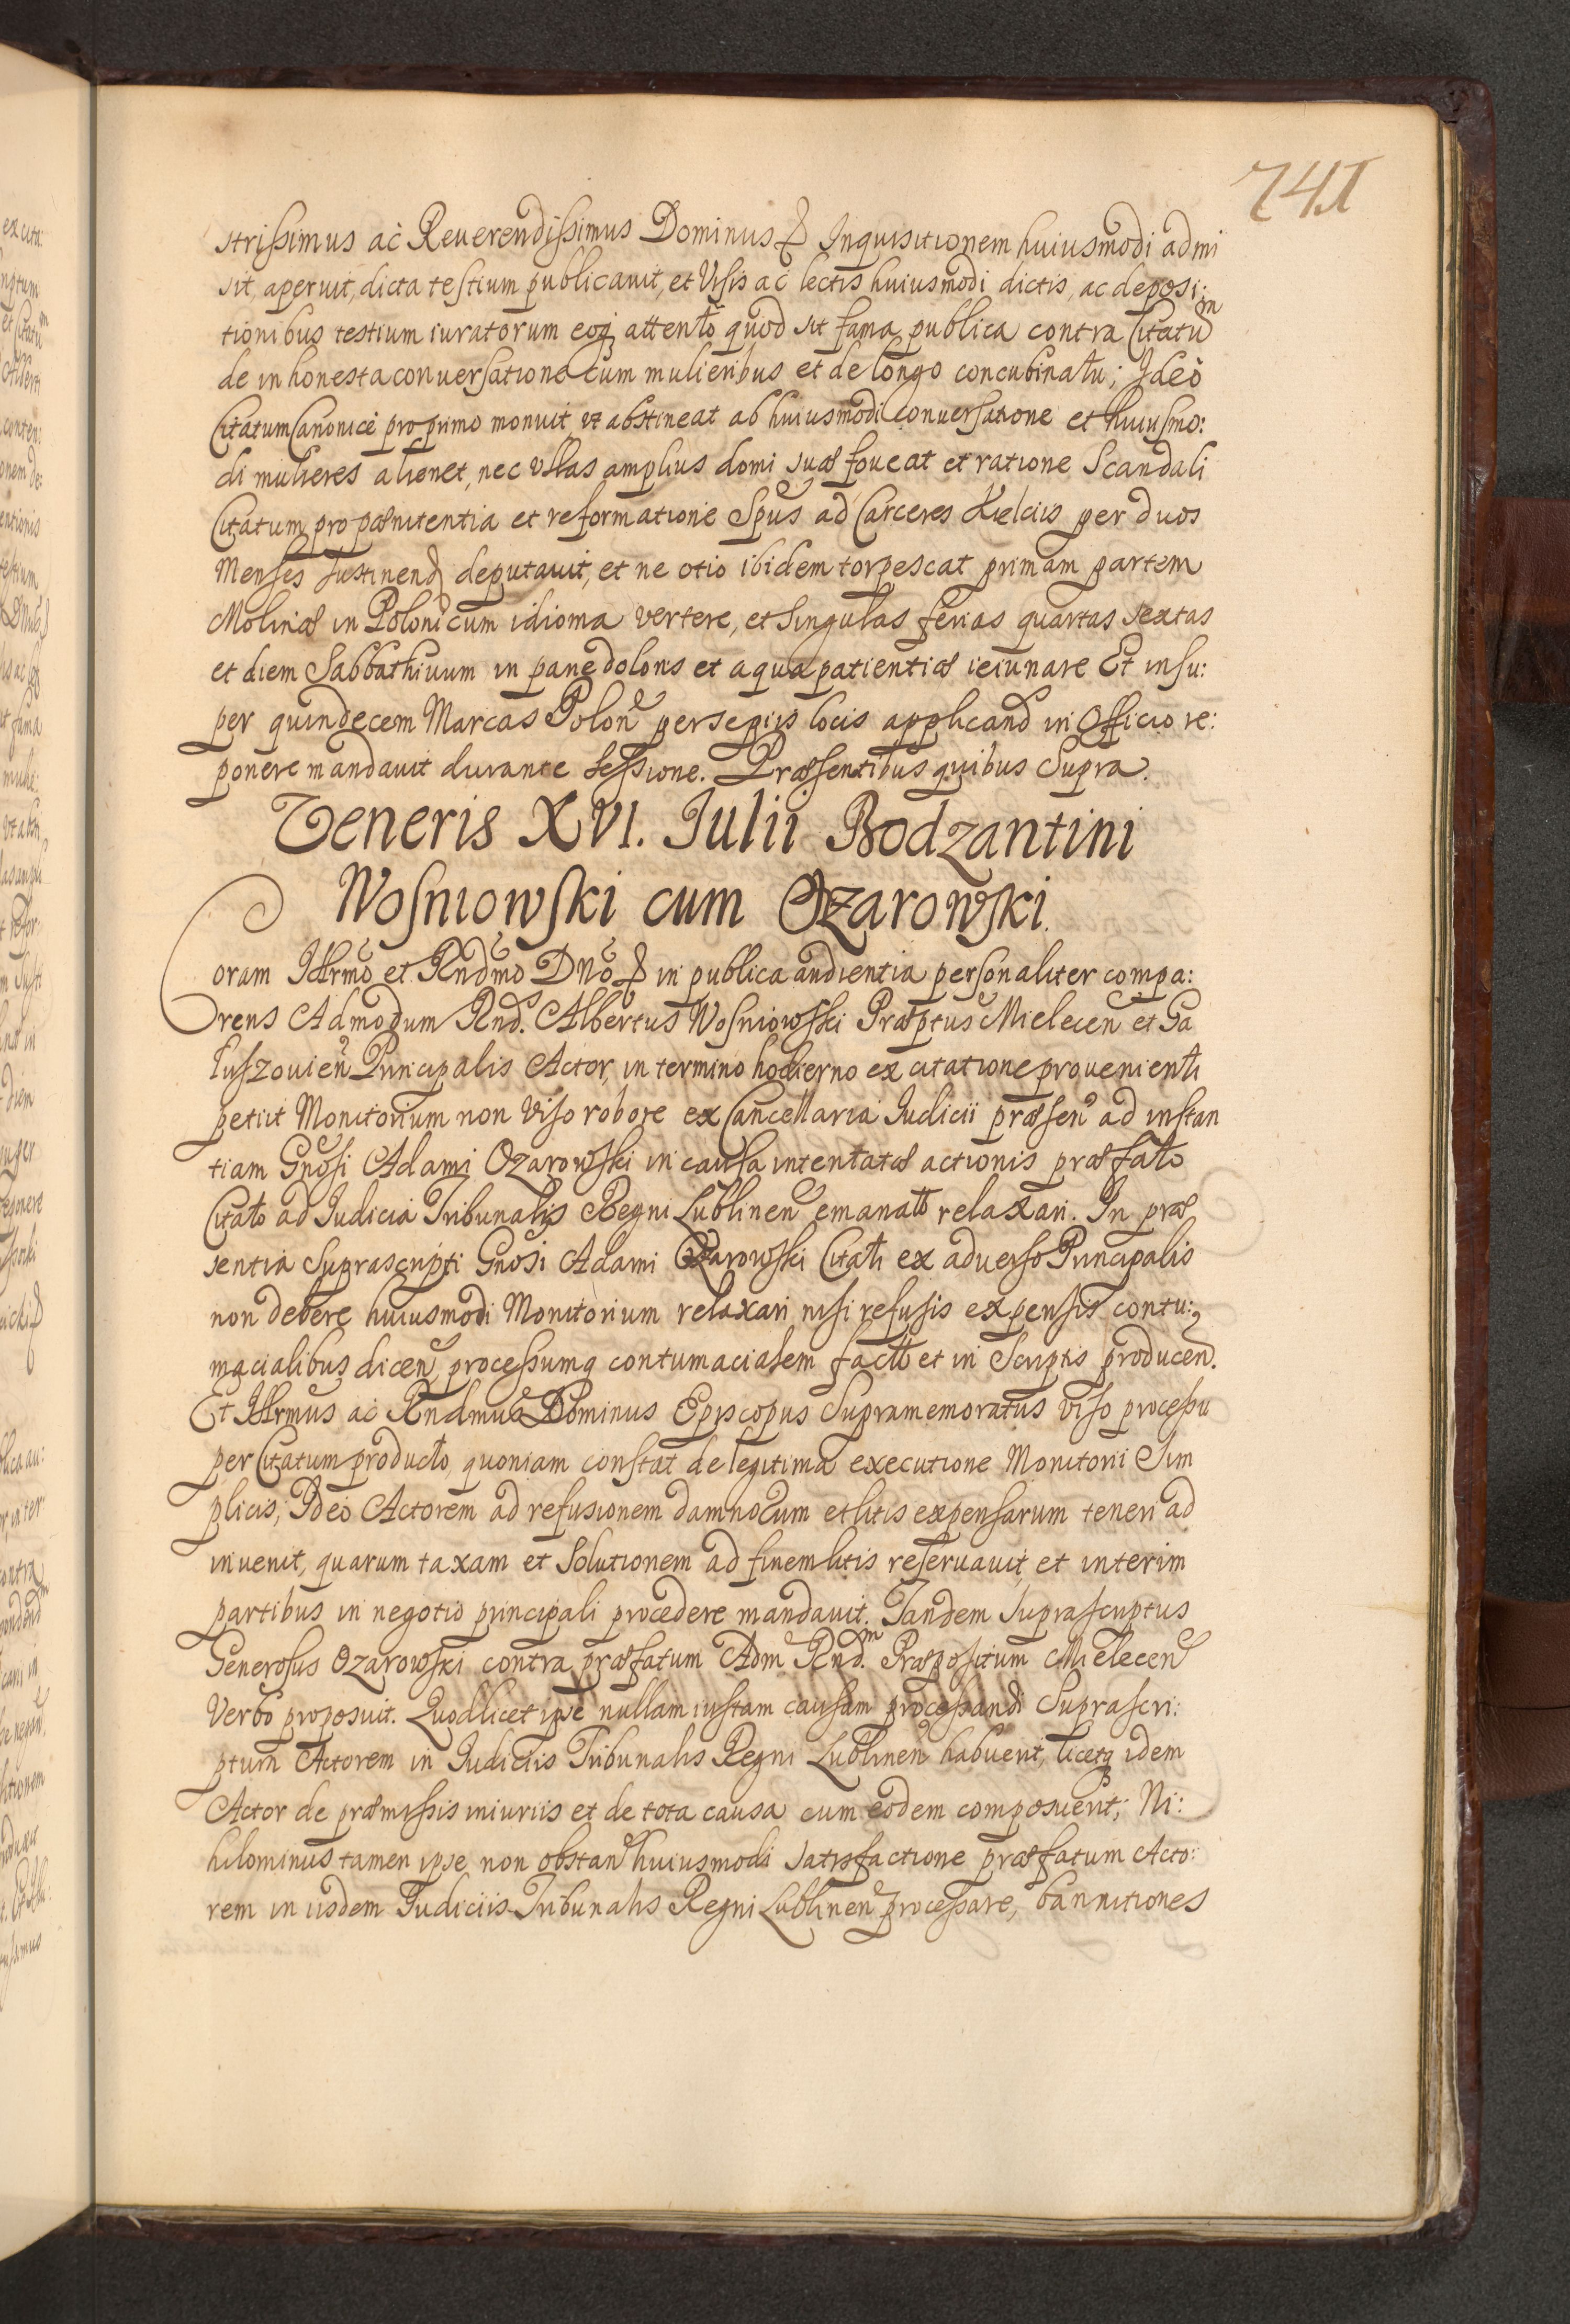 741
strissimus ac Reuerendissimus Dominus Inquisitionem huiusmodi admi
sit, aperuit, dicta testium publicauit, et Visis ac lectis huiusmodi dictis, ac deposi:
tionibus testium iuratorum eoq; attento quod sit fama publica contra Citatum
de inhonesta conuersatione cum mulieribus et de longo concubinatu; Ideo
Citatum Canonice pro primo monuit, vt abstineat ab huiusmodi conuersatione et huiusmo:
di mulieres alienet, nec vllas amplius domi suæ foueat et ratione Scandali
Citatum pro pœnitentia et reformatione Spus ad Carceres Kielciis per duos
Menses sustinend deputauit, et ne otio ibidem torpescat primam partem
Molinæ in Polonicum idioma vertere, et singulas ferias quartas sextas
et diem Sabbathiuum in pane doloris et aqua patientiæ ieiunare Et insu:
per quindecem Marcas Polon per se piis locis applicand in Officio re:
ponere mandauit durante sessione. Præsentibus quibus Supra.
Veneris XVI. Iulii Bodzantini
Wosniowski cum Ozarowski.
Coram Illrmo et Rndmo Dno in publica audientia personaliter compa:
rens Admodum Rnd. Albertus Wosniowski Præptus Mielecen et Ga
luszouien Principalis Actor, in termino hodierno ex citatione prouenienti
petiit Monitorium non Viso robore ex Cancellaria Iudicii præsen ad instan
tiam Gnosi Adami Ozarowski in causa intentatæ actionis præfato
Citato ad Iudicia Tribunalis Regni Lublinen emanato relaxari. In præ
sentia Suprascripti Gnosi Adami Ozarowski Citati ex aduerso Principalis
non debere huiusmodi Monitorium relaxari nisi refusis expensis contu:
macialibus dicen, processumq contumacialem facto et in Scriptis producen.
Et Illrmus ac Rndmus Dominus Episcopus Supramemoratus viso processu
per Citatum producto, quoniam constat de legitima executione Monitorii Sim
plicis; Ideo Actorem ad refusionem damnorum et litis expensarum teneri ad
inuenit, quarum taxam et Solutionem ad finem litis reseruauit, et interim
partibus in negotio principali procedere mandauit. Tandem suprascriptus
Generosus Ozarowski contra præfatum Adm Rndm Præpositum Mielecen
Verbo proposuit. Quod licet ipse nullam iustam causam processandi Suprascri:
ptum Actorem in Iudiciis Tribunalis Regni Lublinen habuerit, licetq idem
Actor de præmissis iniuriis et de tota causa cum eodem composuerit; Ni:
hilominus tamen ipse non obstan huiusmodi satisfactione præfatum Acto:
rem in iisdem Iudiciis Tribunalis Regni Lublinen processare, bannitiones